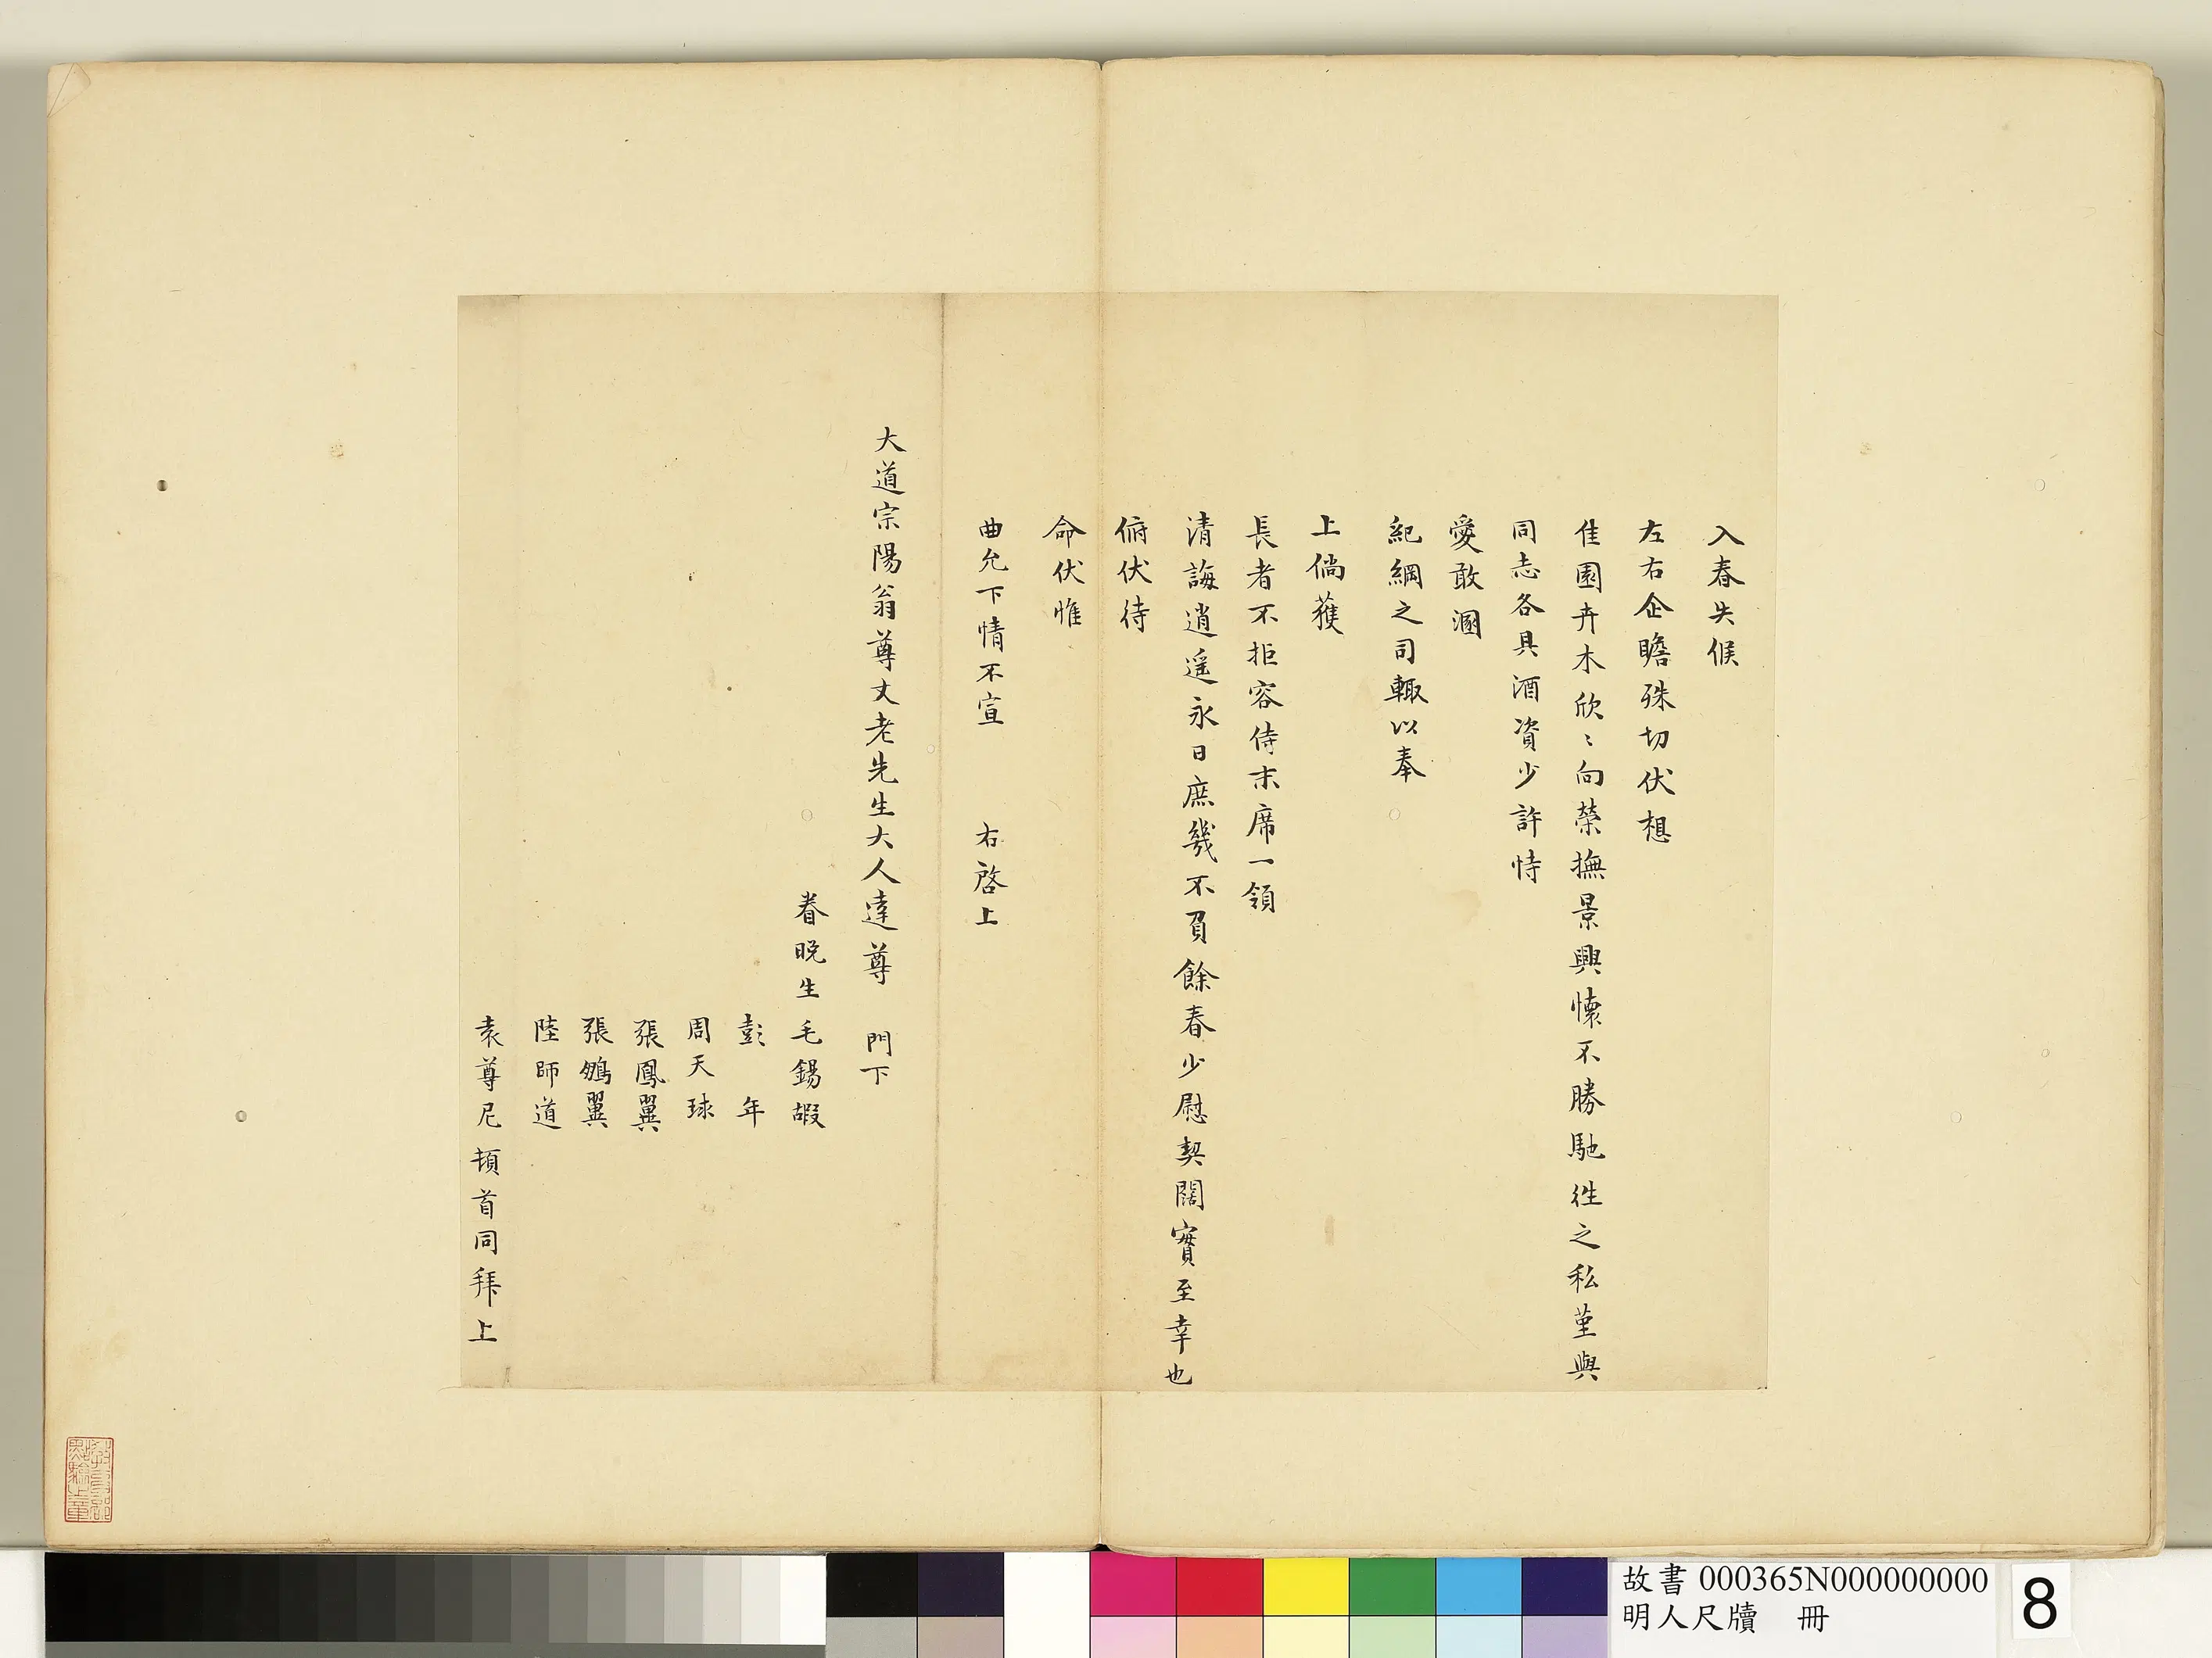 入春失候
左右企瞻殊切伏想
佳園卉木欣〻向榮撫景興懷不勝馳徃之私茥與
同志各具酒資少許恃
愛敢溷
紀綱之司輙以奉
上倘獲
長者不拒容侍末席一領
清誨逍遥永日庶幾不負餘春少慰契闊實至幸也
俯伏待
命伏惟
曲允下情不宣 右啓上
大道宗陽翁尊丈老先生大人達尊 門下
眷晩生毛錫嘏
彭年
周天球
張鳳翼
張鶵翼
陸師道
袁尊尼頓首同拜上
教育部點驗之章
故書 000365N000000000
明人尺牘 冊
8